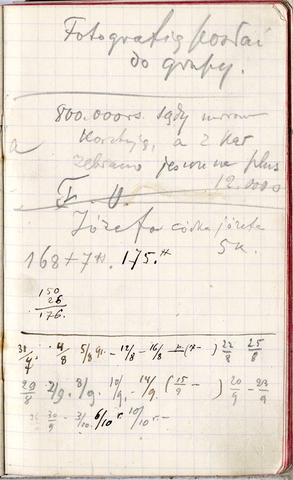 Fotografię posłać
do grupy.
800.000 rs. sądy
a kosztują, a z kar
zebrano jeszcze na plus
12.000
F. U.
Józefa córka Józefa
5 k.
168 + 7 175.
150
26
176.
31/7 4/8 5/8 12/8 - 16/8 ) 22/8 25/8
29/8 2/9. 8/9. 10/9. - 14/9. ( 15/9 - ) 20/9 - 23/9
30/9 - 3/10. 6/10 10/10 -